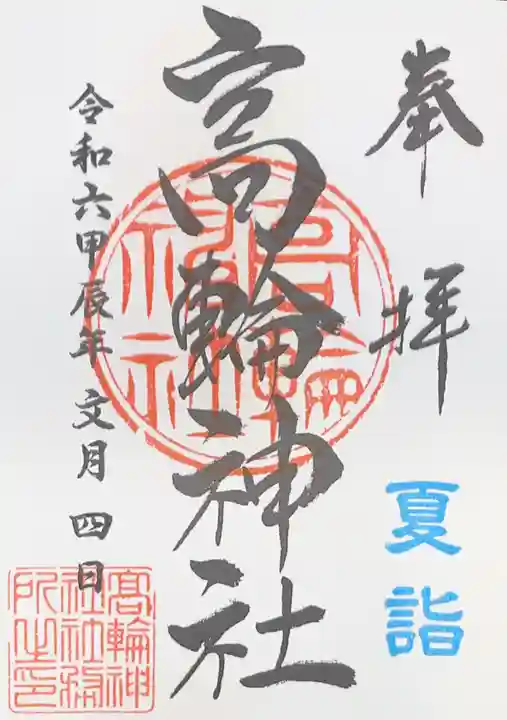 奉拝
夏詣
高輪神社
令和六甲辰年 文月 四日
高輪神
社社務
所之印